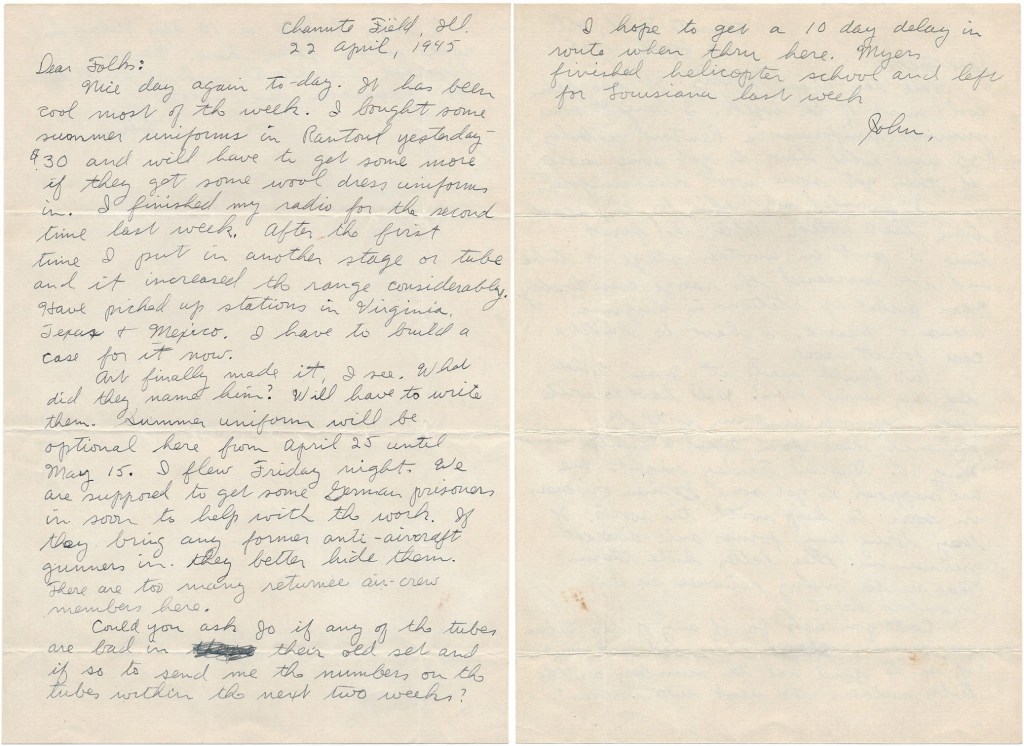 Chanute Field, Ill.
22 April, 1945
Dear Folks:
Nice day again to-day. It has been
cool most of the week. I bought some
summer uniforms in Rantoul yesterday -
$30 and will have to get some more
if they get some wool dress uniforms
in. I finished my radio for the second
time last week. After the first
time I put in another stage or tube
and it increased the range considerably.
Have picked up stations in Virginia,
Texas + Mexico. I have to build a
case for it now.
Art finally made it, I see. What
did they name him? Will have to write
them. Summer uniform will be
optional here from April 25 until
May 15. I flew Friday night. We
are supposed to get some German prisoners
in soon to help with the work. If
they bring any former anti-aircraft
gunners in. they better hide them.
There are too many returnee air-crew
members here.
Could you ask Jo if any of the tubes
are bad in their old set and
if so to send me the numbers on the
tubes within the next two weeks?
I hope to get a 10 day delay in
route when thru here. Myers
finished helicopter school and left
for Louisiana last week
John.